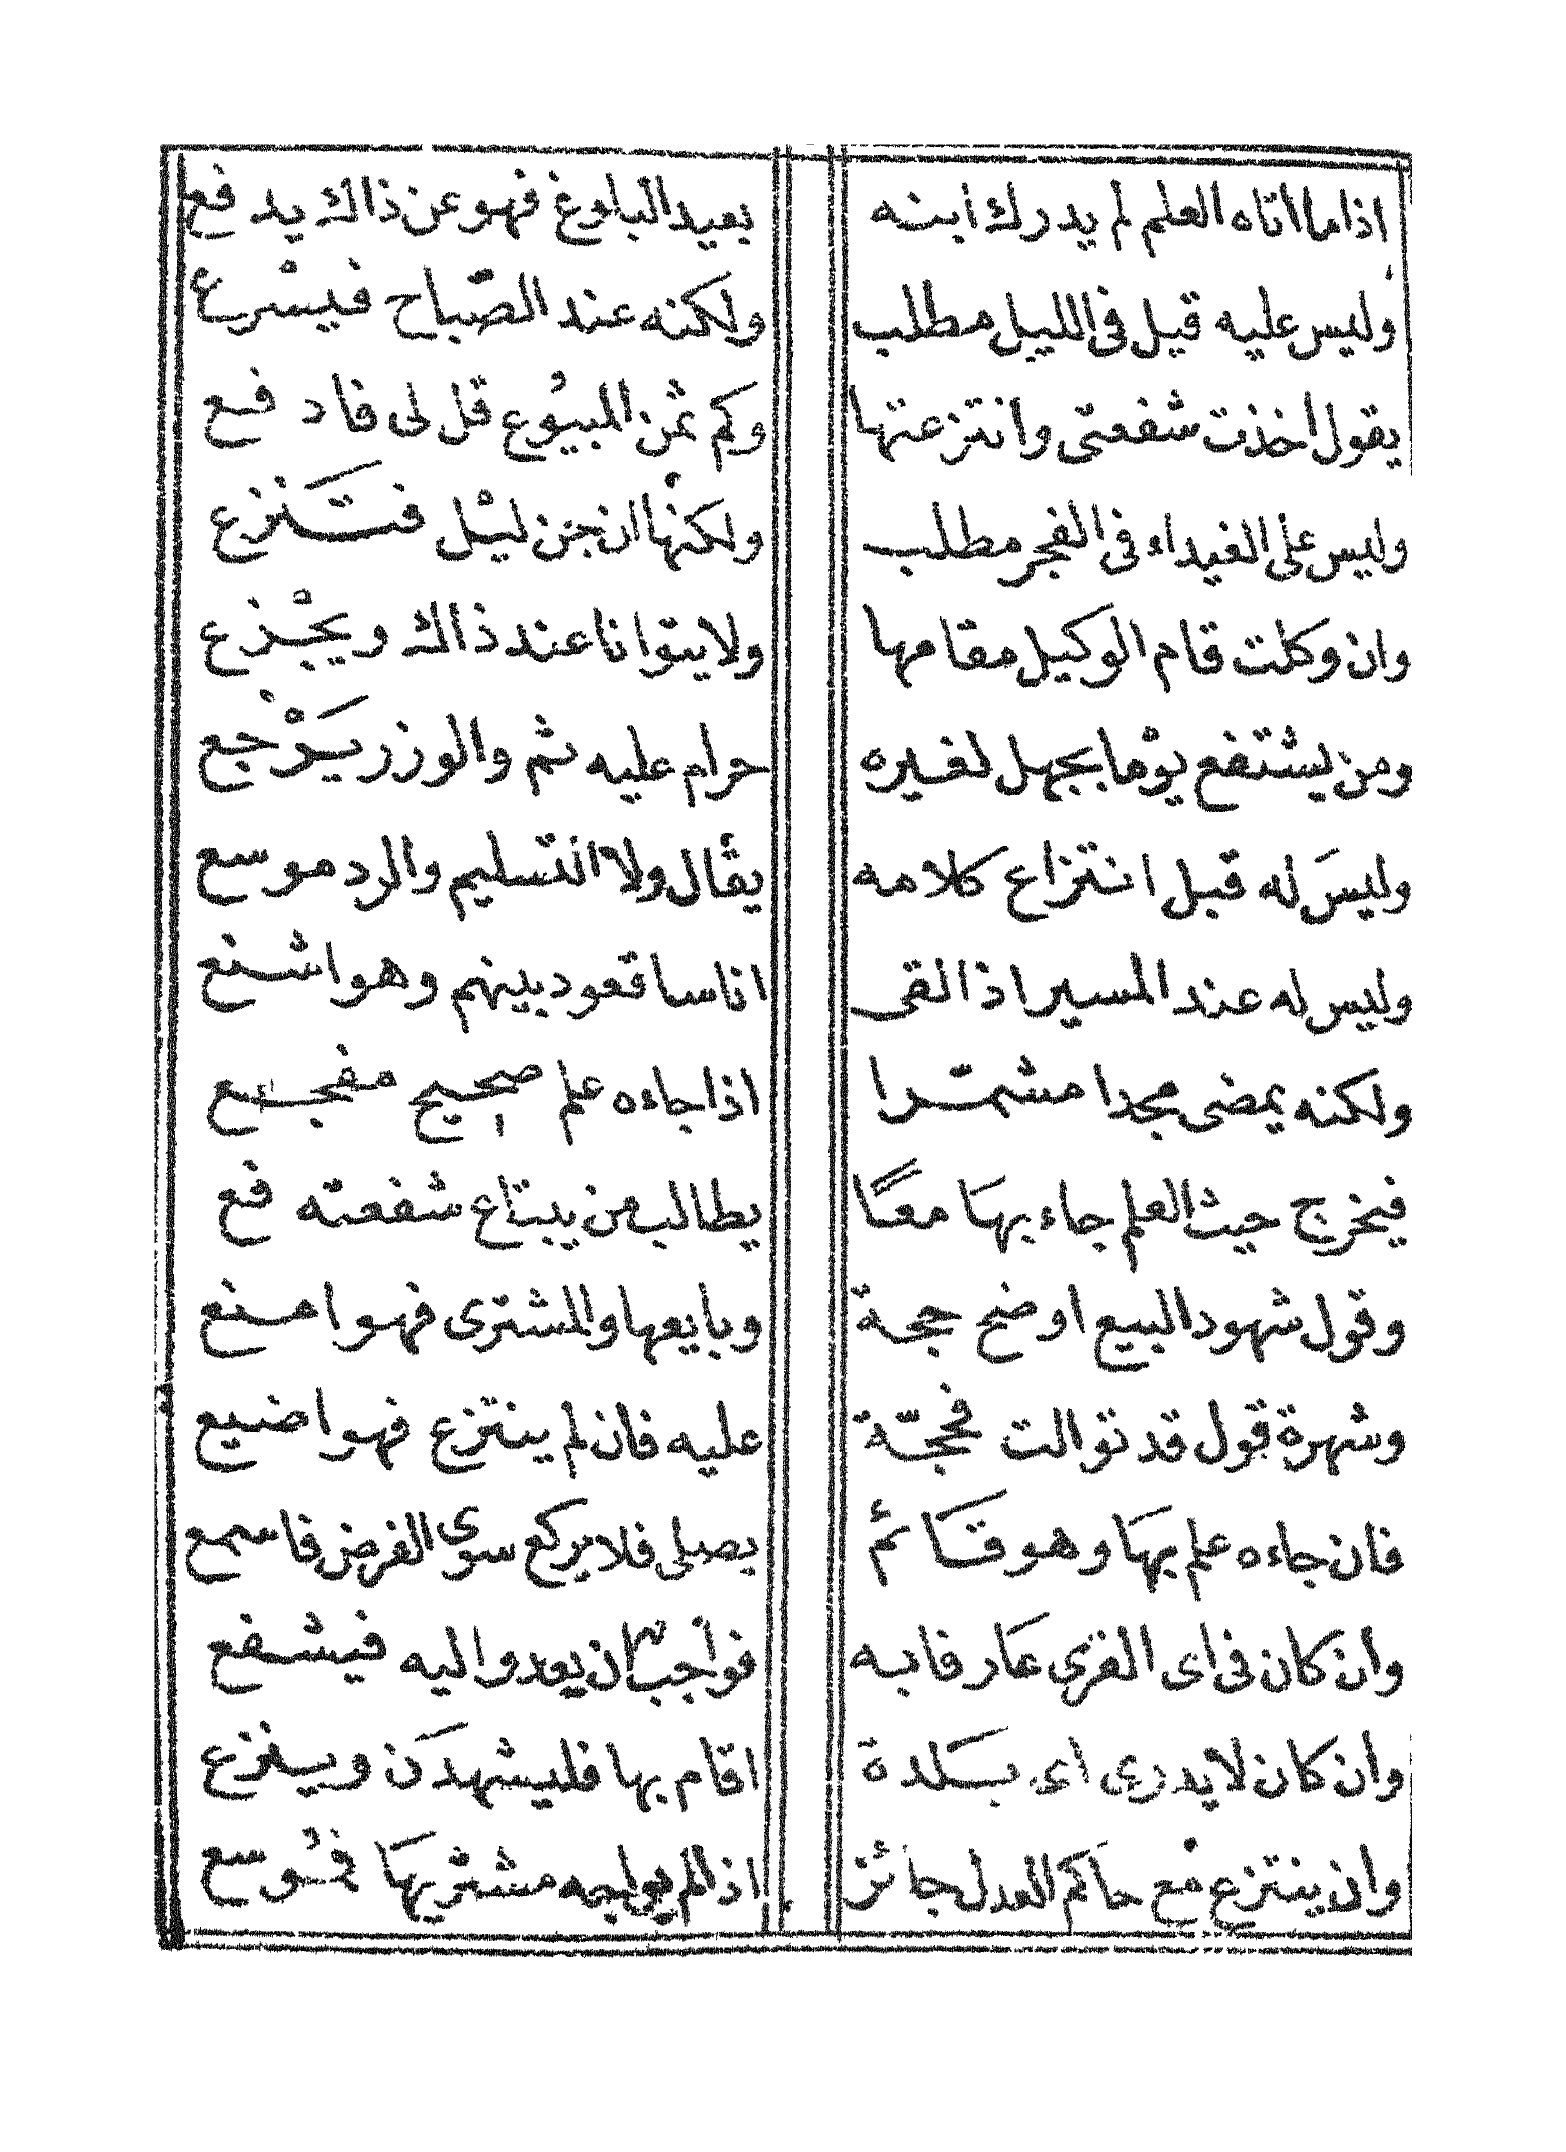 اذاما اتاه العلم لم يدرك ابنه بعيد البلوغ فهو عن ذاك يدفع
وليس عليه قيل في الليل مطلب ولكنه عند الصّباح فيسْرع
يقول اخذت شفعتى وانتزعتها وكم ثمن المبيُوع قل لى فادفع
وليس على الغيداء في الفجر مطلب ولكنها ان جن ليْل فتَنزع
وان وكلت قام الوكيل مقامها ولا يتوانا عند ذاك ويجْزع
ومن يستفع يوْما بجهل لغيره حرام عليه ثم والوزر يَرْجع
وليسَ له قبل انتزاع كلامه يقال ولا التسليم والرد موسع
وليس له عند المسير اذا لقى اناسا قعود بينهم وهو اشنع
ولكنه يمضى مجدا مشمّرا اذا جاءه علم صحيح مفجع
فيخرج حيث العلم جاء بهَا معًا يطالب من يبتاع شفعته فع
وقول شهود البيع اوضح حجة وبايعها والمشترى فهو امنع
وشهرة قول قد توالت فحجّة عليه فان لم ينتزع فهو اضيع
فان جاءه علم بهَا وهو قَائم يصلى فلا يركع سوى الفرض فاسمع
وان كان في اى القرى عَار فا به فواجب ان يعدو اليه فيشفع
وان كان لا يدرى اى بَلدة اقام بها فليشهدَن وينزع
وان ينتزع مع حاكم العدل جائز اذا لم يواجه مشتريهَا فمُوسع